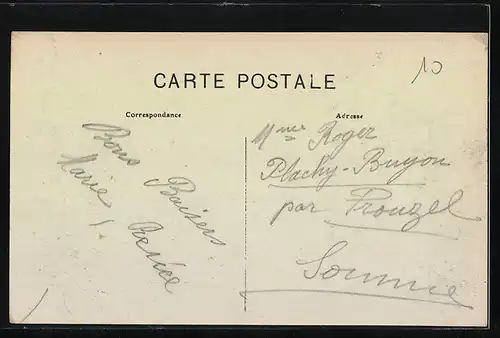 10
CARTE POSTALE
Correspondance
Adresse
Bons Baisers
Marie Renée
Mme Roger
Plachy-Buyon
par Prouzel
Somme